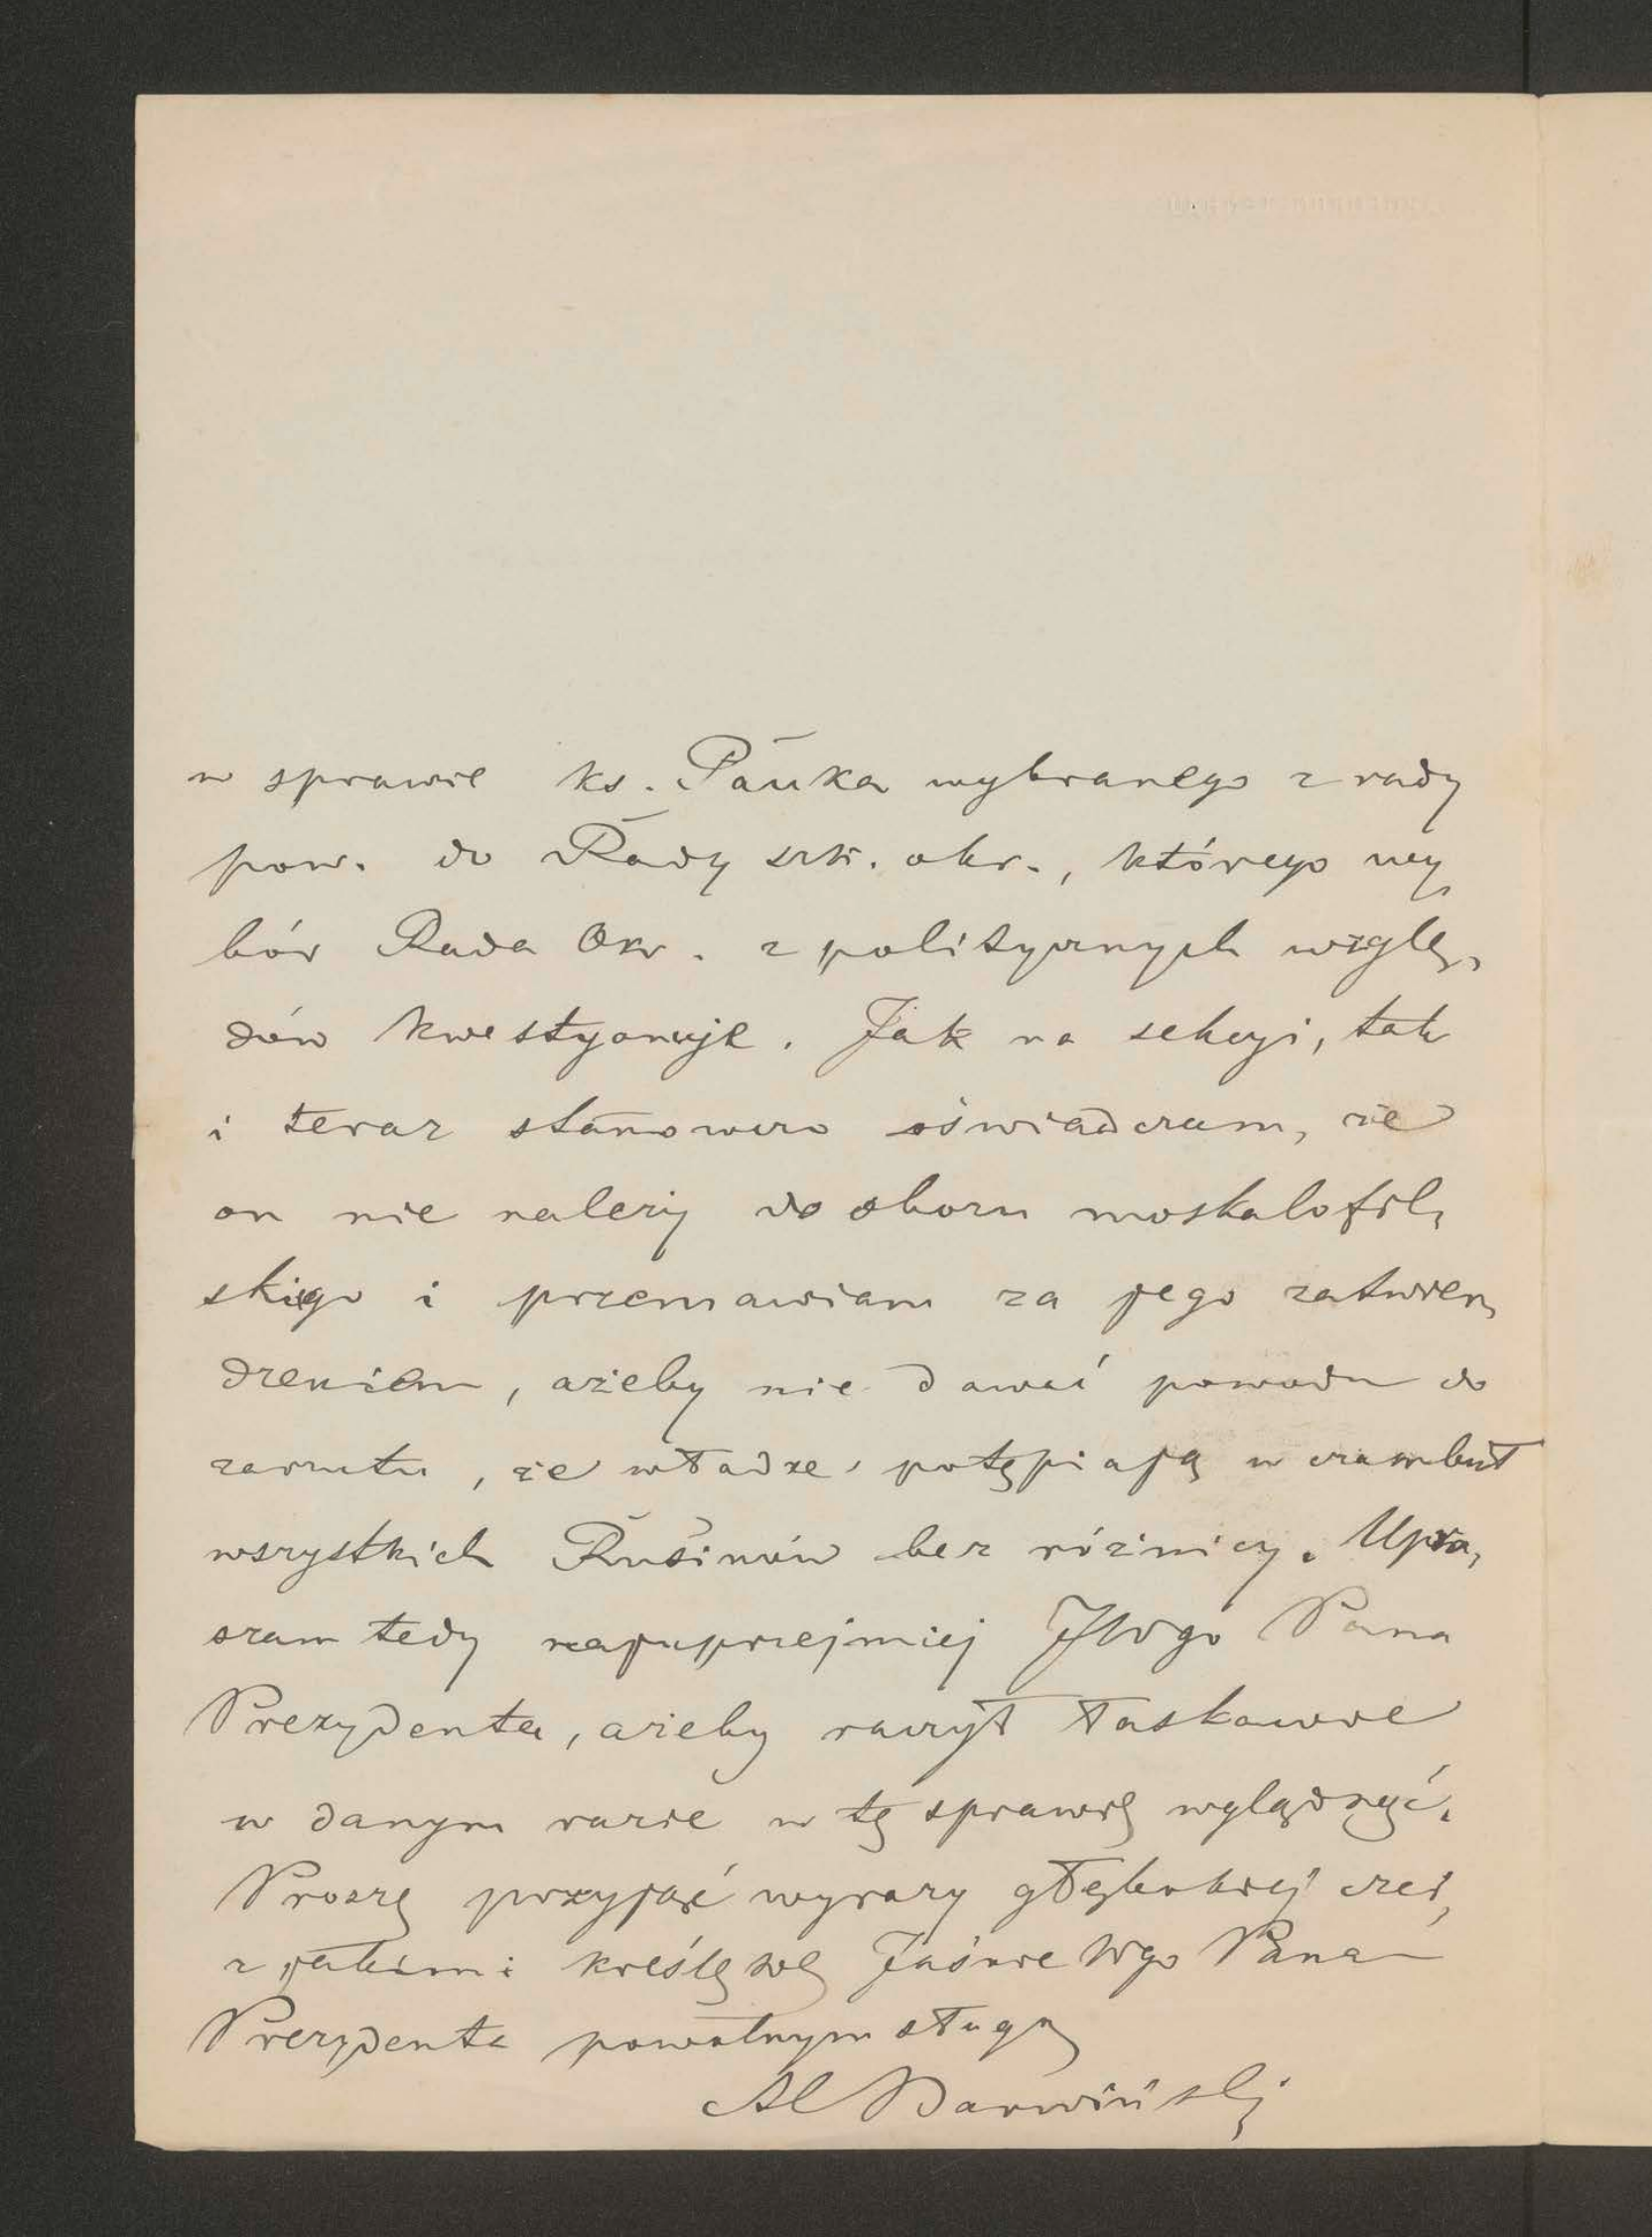 w sprawie ks. Pauka wybranego z rady
pow. do Rady szk. okr., którego wy
bór Rada Okr. z politycznych wzglę,
dów kwestyonuje. Jak na sekcyi, tak
i teraz stanowczo oświadczam, że
on nie należy do obozu moskalofil,
skiego i przemawiam za jego zatwier,
dzeniem, ażeby nie dawać powodu do
zarzutu, że władze potępiają w czambuł
wszystkich Rusinów bez różnicy. Upra,
szam tedy najuprzejmiej JWgo Pana
Prezydenta, ażeby raczył łaskawie
w danym razie w tę sprawę wglądnąć.
Proszę przyjąć wyrazy głębokiej czci,
z jakimi kreślę się Jaśnie Wgo Pana
Prezydenta powolnym sługą
Al Barwiński